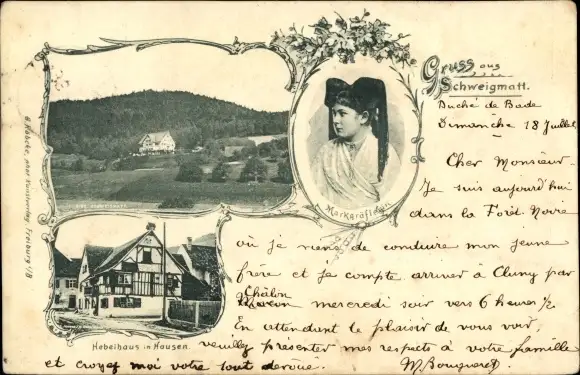 Gruss aus
Schweigmatt.
Duché de Bade
Dimanche 18 Juillet
Cher Monsieur
Je suis aujourd'hui
dans la Forêt-Noire
où je viens de conduire mon jeune
frère et je compte arriver à Cluny par
Châlon
Macon mercredi soir vers 6 heures 1/2
En attendant le plaisir de vous voir,
veuillez présenter mes respects à votre famille
et croyez moi votre tout dévoué.
M. Bouqueret
Markgräflerin
Hebelhaus in Hausen.
Freiburg i/B